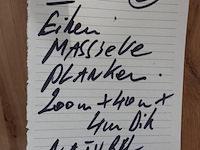 Eiken
MASSieve
PLANKEN.
200m x 40m x
4m Dik